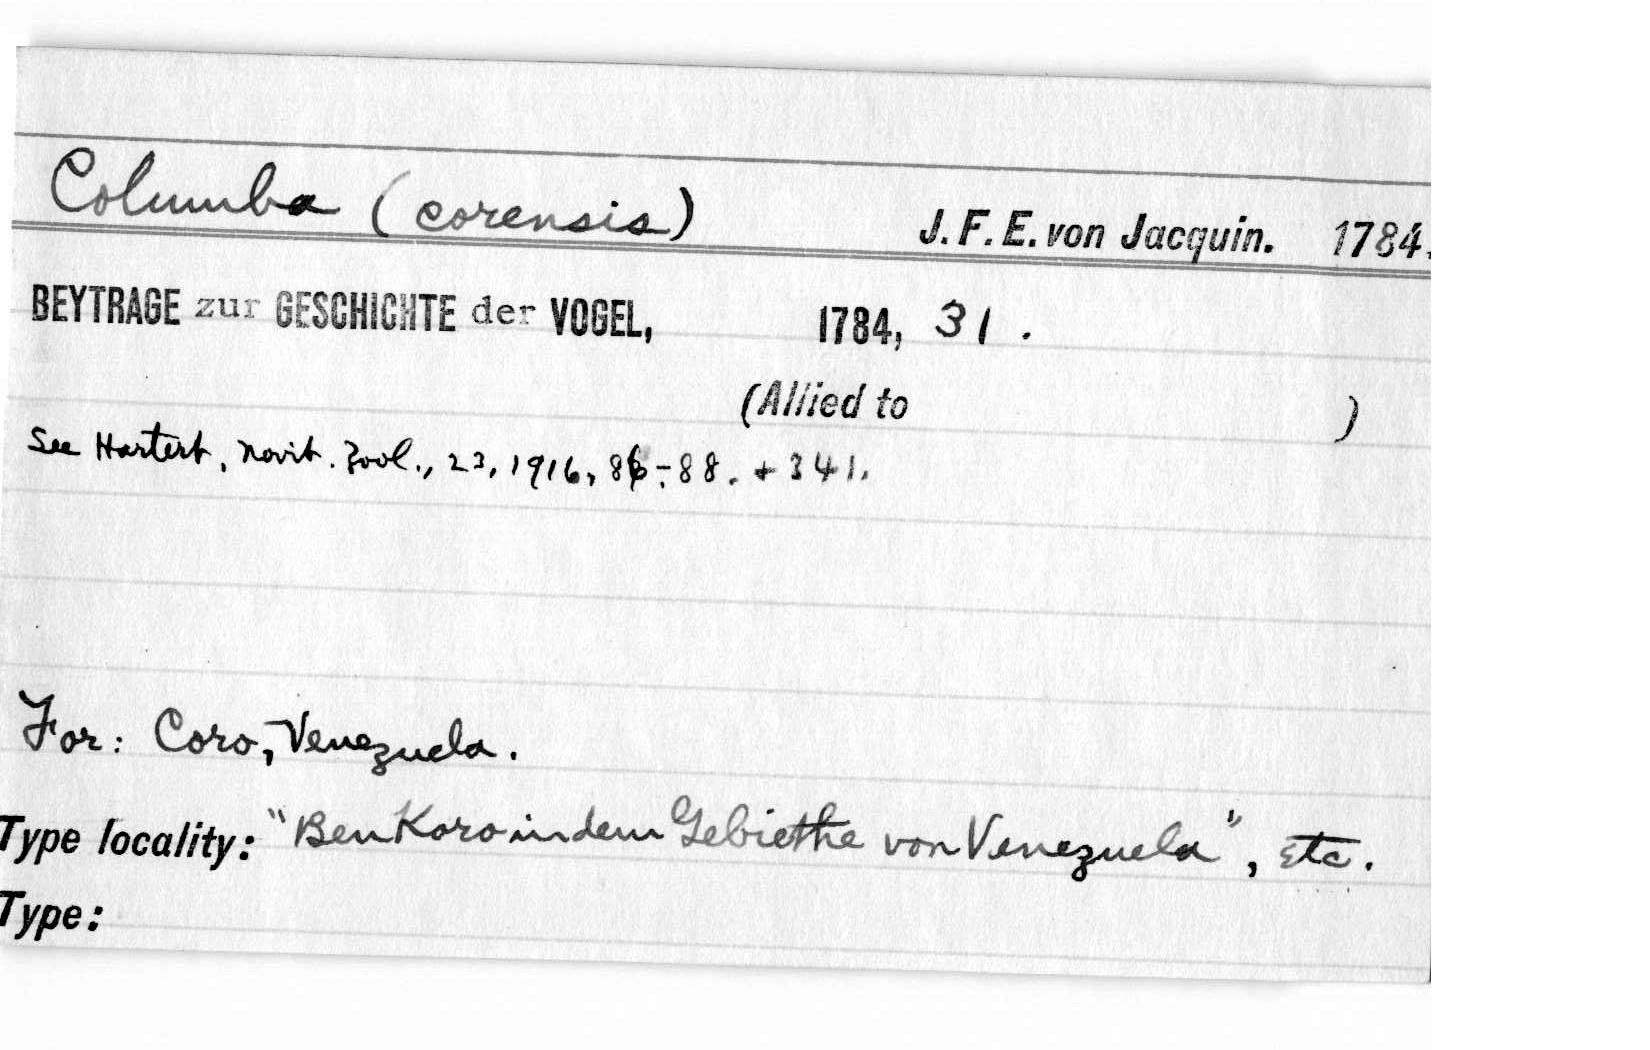 Columba (corensis) J. F. E. von Jacquin. 1784.
BEYTRAGE zur GESCHICHTE der VOGEL, 1784, 31.
(Allied to )
See Hartert, Novit. Zool., 23, 1916, 86-88. + 341.
For: Coro, Venezuela.
Type locality: "Ben Koro in dem Gebiethe von Venezuela", etc.
Type: